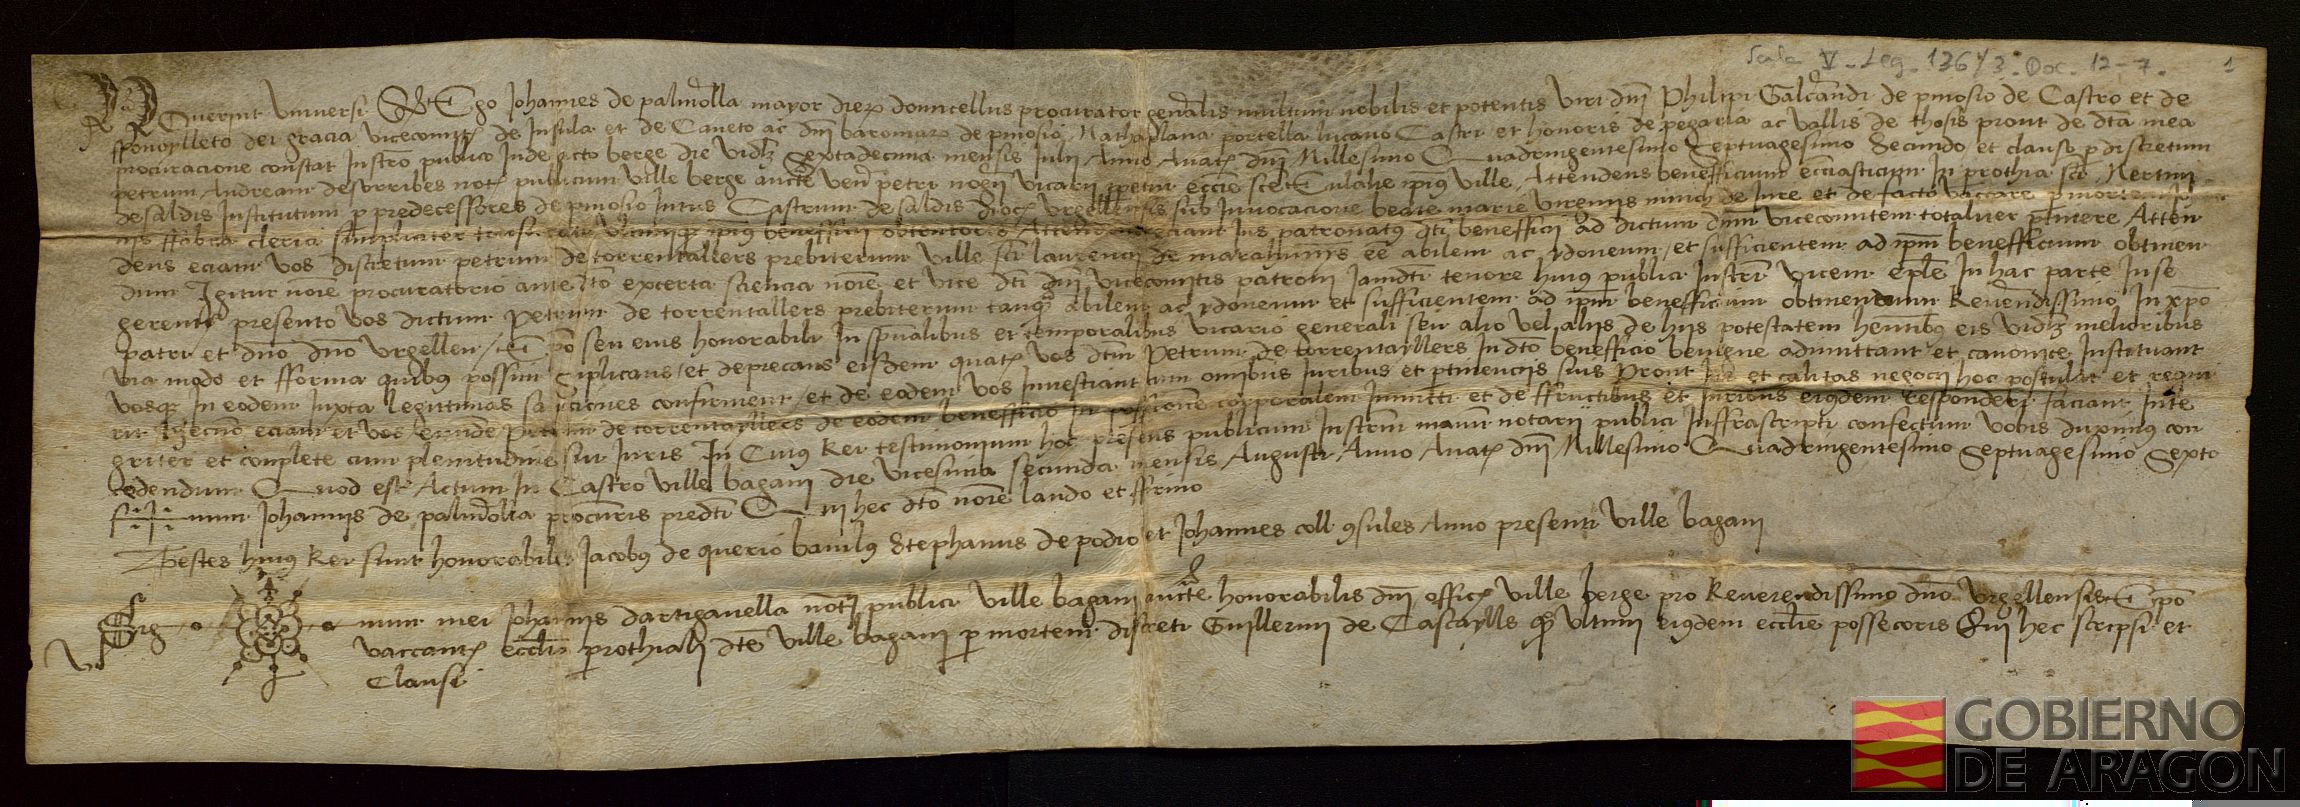 Sala V - Leg. 136/3 - Doc. 12-7. 1
Noverint universi Q Ego Johannes de palmerolla mayor dierum domicellus procurator generalis multum nobilis et potentis viri dni Philipi Galcerandi de pinosio de Castro et de
ffonoylleto dei gracia vicecomitis de Insula et de Caneto ac dni baroniarum de pinosio Mathaplana portella lucano Castri et honoris de pegaria ac vallis de thosis prout de dta mea
procuracione constat Instro publico Inde facto berge die vidlz Sextadecima mensis Julii Anno a nat dni Millesimo Quadringentesimo Septuagesimo Secundo et clauso p discretum
petrum Andream not publicum ville berge aucte petri vicarii eccie sce Eulalie ville Attendens benefficium ecciasticum In prothia sci Mertini
de saldis Institutum p predecessores de pinosio Intus Castrum de saldis dioc Urgellensis sub Invocacione beate marie virginis nunch de Jure et de facto vaccare p mortem
ffabra clerici simpliciter tonsurati ultimi benefficii obtentoris Attendens eciam Jus patronatus benefficii ad dictum dnm vicecomitem totaliter ptinere Atten
dens eciam vos discretum petrum de torrentallers prebiterum ville sci laurencii de esse abilem ac ydoneum et sufficientem ad ipm benefficium obtinen
dum Igitur noie procuratorio ante dto ex certa sciencia noie et vice dti dni vicecomitis patroni Jamdti tenore huius publici Instri vicem In hac parte In se
gerentis presento vos dictum Petrum de torrentallers prebiterum tanq abilem ac ydoneum et sufficientem ad ipm benefficium obtinendum Reverendissimo In xpo
patri et dno dno Urgellen Epo seu eius honorabili In spualibus et temporalibus vicario generali seu alio vel aliis de hiis potestatem hentibus eis vidlz melioribus
via modo et fforma quibus possum Suplicans et deprecans eisdem quat vos dtm Petrum de torrentayllers In dto benefficio benigne admittant et canonice Instituant
vosq In eodem Juxta legittimas sanctiones confirment et de eodem vos Investiant cum omibus Juribus et ptinenciis suis Prout et calitas negocii hoc postulat et requi
rit necno eciam et vos eunde petrum de torrentayllers de eodem benefficio In possessione corporalem Inmitti et de ffructibus et Juribus eiusdem responderi faciant Inte
griter et conplete cum plenitudine sui Juris In Cuius Rei testimonium hoc presens publicum Instrm manu notarii publici Inffrascripti confectum vobis duximus con
cedendum Quod est Actum In Castro ville bagani die vicesima secunda mensis Augusti Anno a nat dni Millesimo Quadringentesimo Septuagesimo Sexto
Sig num Johannis de palmerolla procuris predti Qui hec dto noie laudo et ffirmo
Testes huius Rei sunt honorabiles Jacobus de querio baiulus Stephanus de podio et Johannes coll consules Anno presenti ville bagani
Sig num mei Johannis dartigavella not publici ville bagani aucte honorabilis dni offic ville berge pro Reverendissimo dno Urgellensis Epo
vaccant ecclie prothialis dte ville bagani p mortem discreti Guillermi de Cascaylls ultimi eiusdem ecclie possecoris Qui hec scripsi et
Clausi
GOBIERNO
DE ARAGON